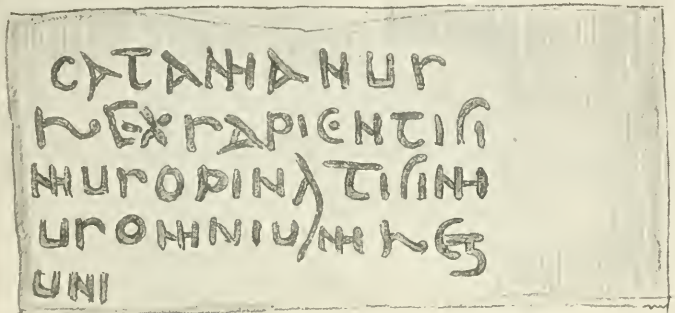 CATAMANUS
REXSAPIENTISI
MUSOPINATISIM
USOMNIUMREG
UM